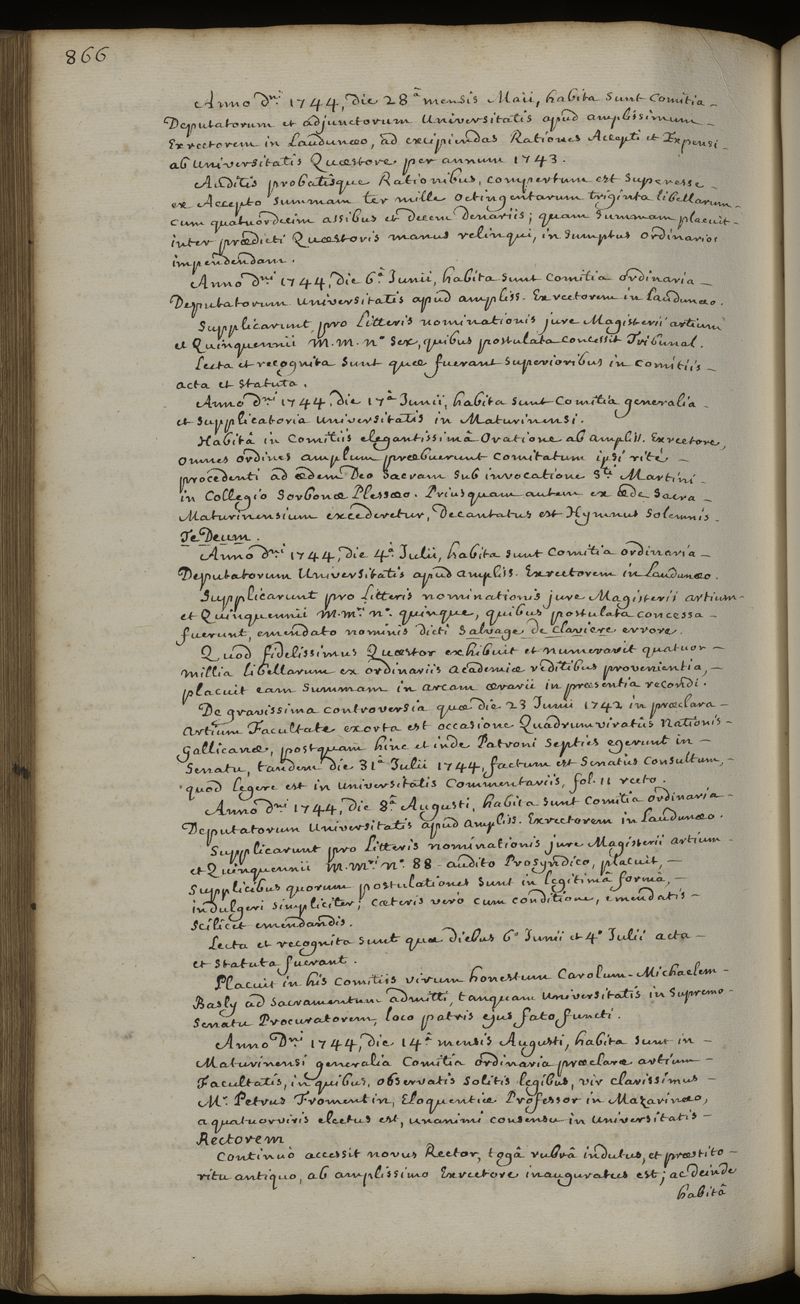 866
Anno Dni 1744, die 28â mensis Maii, habita sunt Comitia –
Deputatorum et adjunctorum Universitatis apud amplissimum –
Exrectorem in Laudunæo, ad excipiendas Rationes Accepti et Expensi –
ab Universitatis Quæstore per annum 1743.
Auditis probatisque Rationibus, compertum est superesse –
ex Accepto summam ter mille octingentarum triginta libellarum –
cum quatuordecim assibus et decem denariis; quam summam placuit –
inter prædicti Quæstoris manus relinqui, in sumptus ordinarios
impendendam.
Anno Dni 1744, die 6â Junii, habita sunt Comitia ordinaria –
Deputatorum Universitatis apud ampliss. Exrectorem in Laudunæo.
Supplicarunt pro Litteris nominationis jure Magisterii artium
et Quinquennii M.M. n° sex, quibus postulata concessit Tribunal.
Lecta et recognita sunt quæ fuerant superioribus in Comitiis –
acta et statuta.
Anno Dni 1744, die 17â Junii, habita sunt Comitia generalia –
et supplicatoria Universitatis in Maturinensi.
Habitâ in Comitiis elegantissimâ Oratione ab ampliss. Exrectore,
omnes ordines amplum præbuerunt Comitatum ipsi rite –
procedenti ad ædem Deo Sacram sub invocatione Sti Martini –
in Collegio Sorbonæ Plessæo. Priusquam autem ex æde sacra –
Maturinensium excederetur, decantatus est Hymnus solemnis –
Te Deum.
Anno Dni 1744, die 4â Julii, habita sunt Comitia ordinaria –
Deputatorum Universitatis apud ampliss. Exrectorem in Laudunæo.
Supplicarunt pro Litteris nominationis jure Magisterii artium –
et Quinquennii M.Mri n°. quinque, quibus postulata concessa –
fuerunt, emendato nominis dicti Salvage de Claviere errore.
Quod fidelissimus Quæstor exhibuit et numeravit quatuor –
millia libellarum ex ordinariis academiæ reditibus provenientia, –
placuit eam summam in arcam ærarii in præsentia recondi.
De gravissima controversia quæ die 23 Junii 1742 in præclara –
Artium Facultate exorta est occasione Quadrumviratûs Nationis –
Gallicanæ, postquam hinc et inde Patroni septies egerunt in –
Senatu, tandem die 31â Julii 1744, factum est Senatus Consultum, –
quod legere est in Universitatis Commentariis, fol. 11 recto.
Anno Dni 1744, die 8â Augusti, habita sunt Comitia ordinaria –
Deputatorum Universitatis apud ampliss. Exrectorem in Laudunæo.
Supplicarunt pro Litteris nominationis jure Magisterii artium –
et Quinquennii M.Mri n°. 88 – audito Prosyndico, placuit, –
supplicibus quorum postulationes sunt in legitimâ formâ, –
indulgeri simpliciter; cæteris vero cum conditione, emendatis –
scilicet emendandis.
Lecta et recognita sunt quæ diebus 6â Junii et 4â Julii acta –
et statuta fuerant.
Placuit in his Comitiis virum honestum Carolum-Michaelem –
Basly ad Sacramentum admitti, tanquam Universitatis in Supremo –
Senatu Procuratorem, loco patris ejus fato functi.
Anno Dni 1744, die 14â mensis Augusti, habita sunt in –
Maturinensi generalia Comitia ordinaria præclaræ artium –
Facultatis, in quibus, observatis solitis legibus, vir clarissimus –
Mr. Petrus Fromentin, Eloquentiæ Professor in Mazarinæo,
a quatuorviris electus est, unanimi consensu in Universitatis –
Rectorem
Continuò accessit novus Rector, togâ rubrâ indutus, et præstito –
ritu antiquo, ab amplissimo Exrectore inauguratus est; ac deinde
habitâ